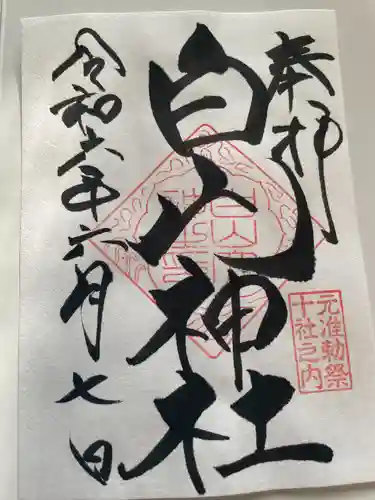 奉拝
元准勅祭
十社之内
白山神社
令和六年六月七日